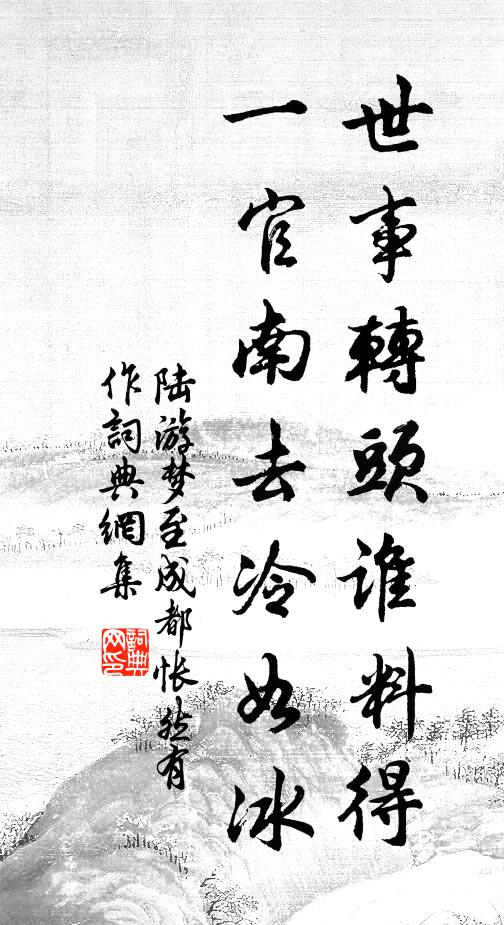 世事轉頭誰料得
一官南去冷如冰
陆游梦至成都怅然有
作詞典網集
詞典网印